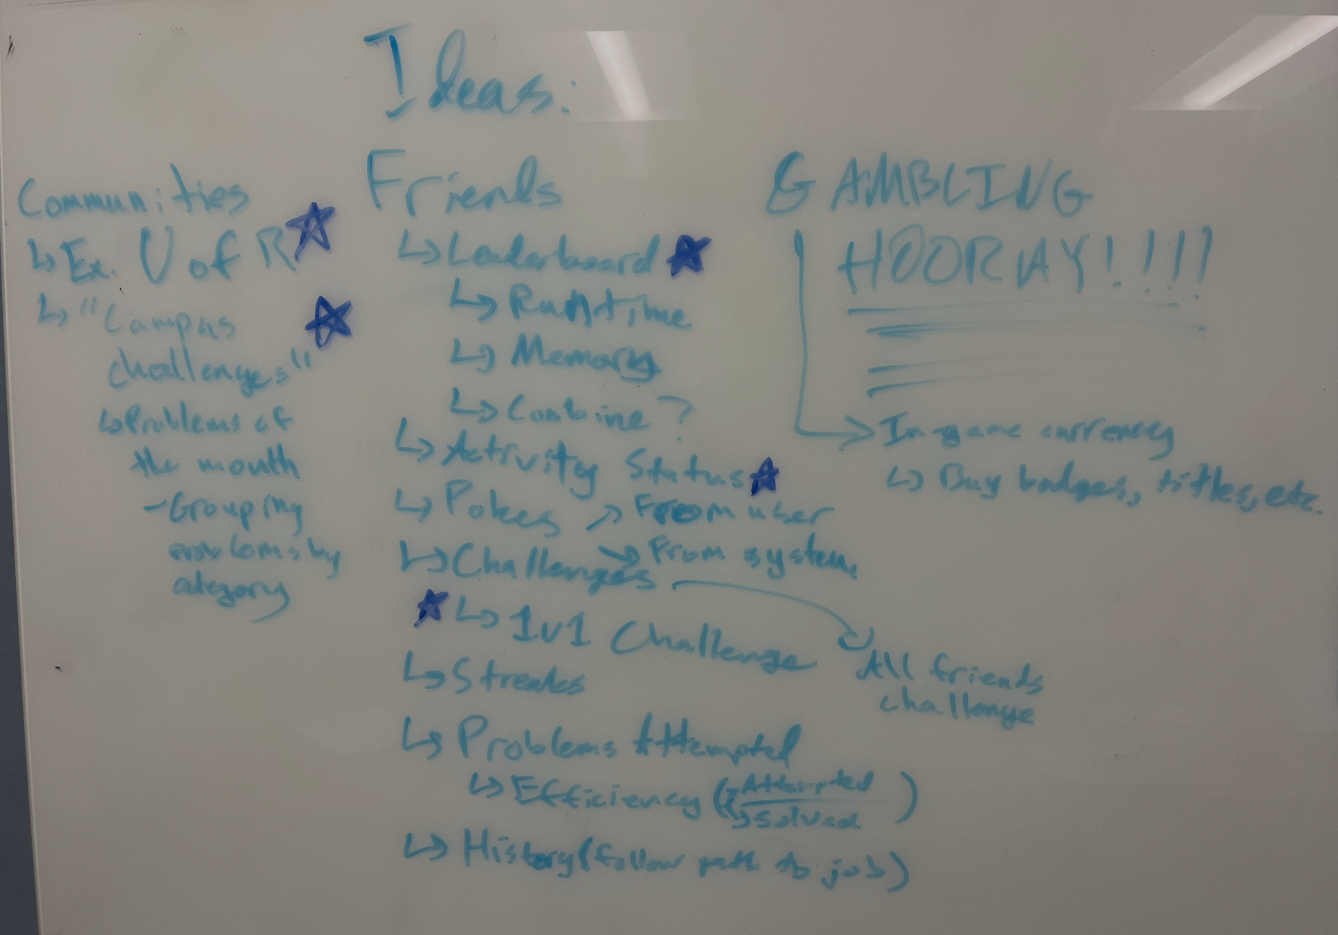 Ideas:
Communities
↳ Ex. U of R ☆
↳ "Campus ☆
challenges"
↳ Problems of
the month
- Grouping
problems by
category
Friends
↳ Leaderboard ★
↳ Runtime
↳ Memory
↳ Combine?
↳ Activity Status ★
↳ Pokes ↗ From user
↘ From system
↳ Challenges
★ ↳ 1v1 Challenge
All friends
challenge
↳ Streaks
↳ Problems Attempted
↳ Efficiency (↱ Attempted
↳ Solved)
↳ History (follow path to job)
GAMBLING
HOORAY!!!!
→ In-game currency
↳ Buy badges, titles, etc.